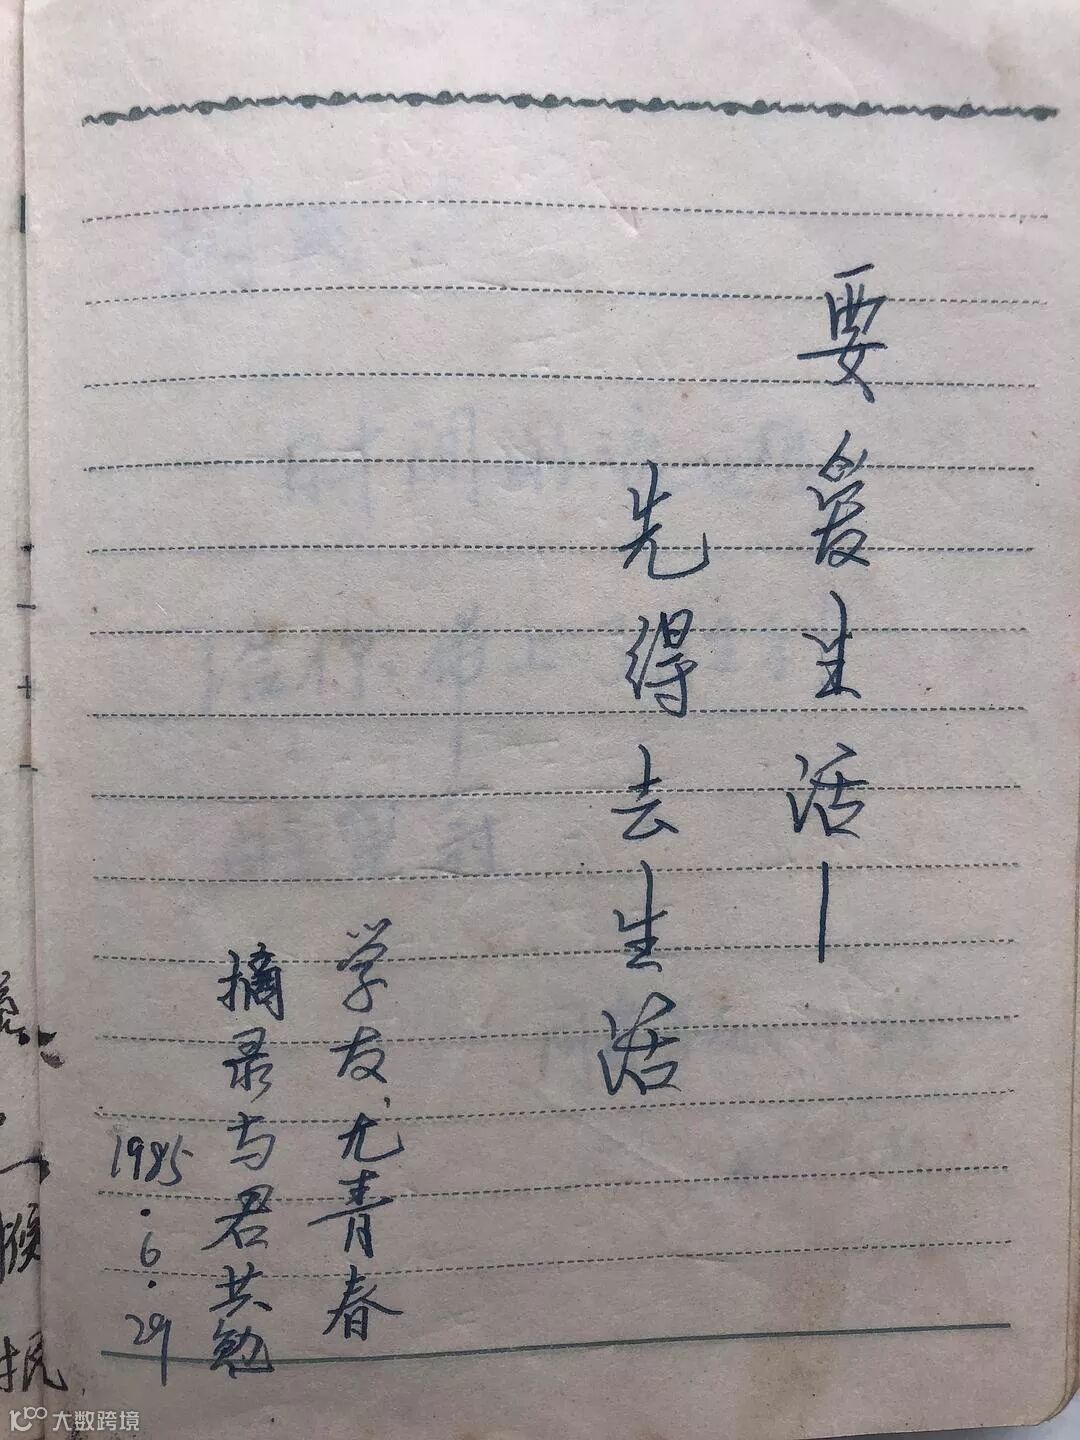 要爱生活—
先得去生活
学友尤青春
摘录与君共勉
1985.6.29
大数跨境